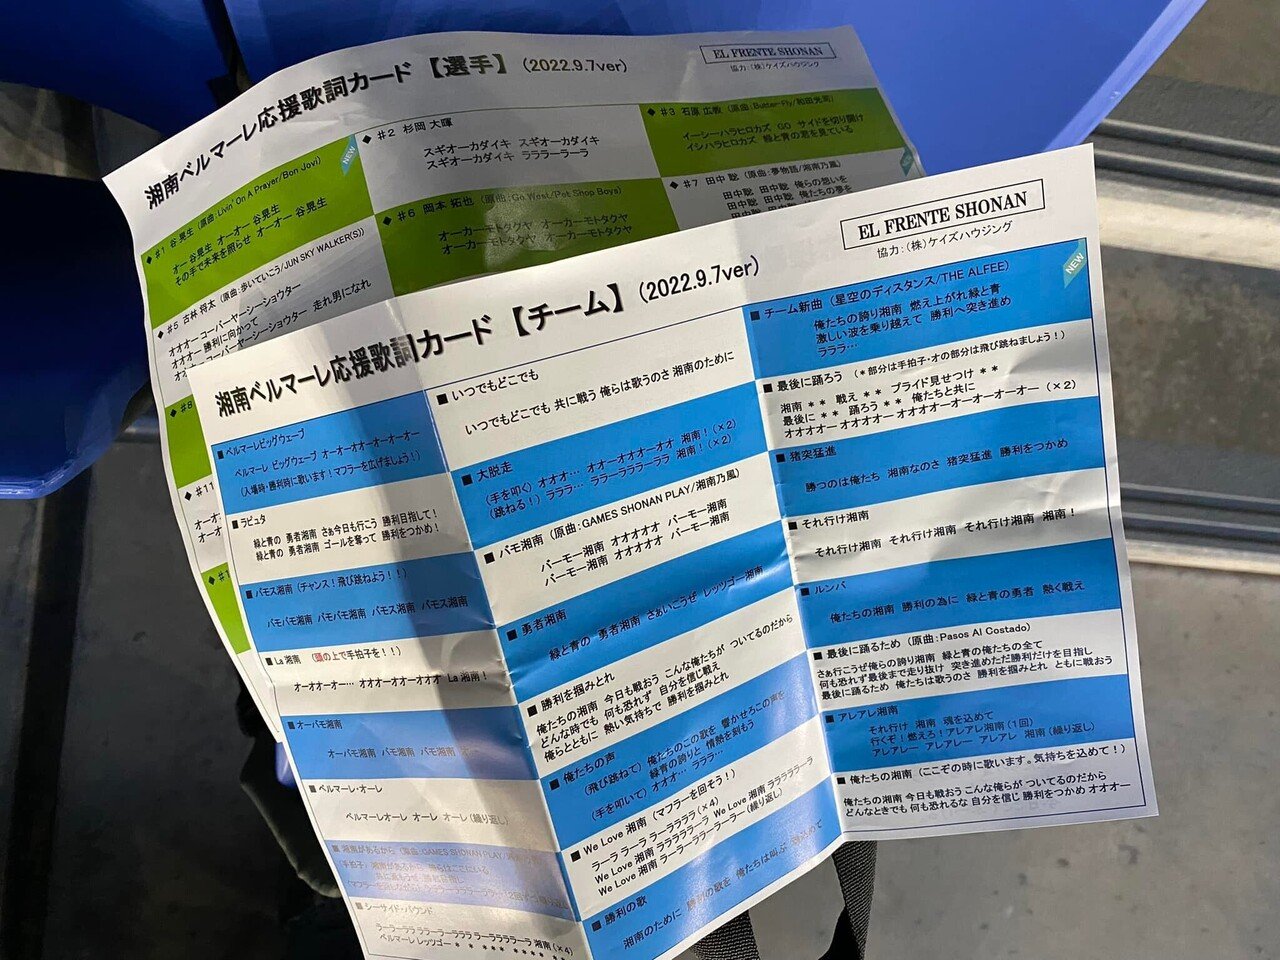 湘南ベルマーレ応援歌詞カード 【選手】 (2022.9.7ver)
EL FRENTE SHONAN
協力:(株)ケイズハウジング
◆ #1 谷 晃生 (原曲:Livin' On A Prayer/Bon Jovi)
NEW
オー 谷晃生 オーオー 谷晃生
その手で未来を照らせ オーオー 谷晃生
◆ #5 古林 将太 (原曲:歩いていこう/JUN SKY WALKER(S))
オオオー コーバーヤーシーショウター
オオオー 勝利に向かって 走れ男になれ
コーバーヤーシーショウター
◆ #8
◆ #11
◆ #2 杉岡 大暉
スギオーカダイキ スギオーカダイキ
スギオーカダイキ ララララーラーラ
◆ #6 岡本 拓也 (原曲:Go West/Pet Shop Boys)
オーカーモトタクヤ オーカーモトタクヤ
オーカーモトタクヤ オーカーモトタクヤ
◆ #3 石原 広教 (原曲:Butter-Fly/和田光司)
イーシーハラヒロカズ GO サイドを切り開け
イシハラヒロカズ 緑と青の君を見ている
◆ #7 田中 聡 (原曲:夢物語/湘南乃風)
田中聡 田中聡 俺らの想いを
田中聡 田中聡 俺たちの夢を
湘南ベルマーレ応援歌詞カード 【チーム】 (2022.9.7ver)
EL FRENTE SHONAN
協力:(株)ケイズハウジング
■ ベルマーレビッグウェーブ
ベルマーレ ビッグウェーブ オーオーオオーオーオーオー
(入場時・勝利時に歌います!マフラーを広げましょう!)
■ ラピュタ
緑と青の 勇者湘南 さぁ今日も行こう 勝利目指して!
緑と青の 勇者湘南 ゴールを奪って 勝利をつかめ!
■ バモス湘南 (チャンス!飛び跳ねよう!!)
バモバモ湘南 バモバモ湘南 バモス湘南 バモス湘南
■ La 湘南 (頭の上で手拍子を!!)
オーオオーオー… オオオーオオーオオオ La 湘南!
■ オーバモ湘南
オーバモ湘南 バモ湘南 バモ湘南
■ ベルマーレ・オーレ
ベルマーレオーレ オーレ オーレ (繰り返し)
■ 湘南があるから (原曲:GAMES SHONAN PLAY/
■ シーサイド・バウンド
ラーラーララ ラーララララ ラーラララララーラ 湘南 (×4)
ベルマーレ レッツゴー
■ いつでもどこでも
いつでもどこでも 共に戦う 俺らは歌うのさ 湘南のために
■ 大脱走
(手を叩く) オオオ… オオーオオオーオオ 湘南! (×2)
(跳ねる!) ラララ… ララーラララーララ 湘南! (×2)
■ バモ湘南 (原曲:GAMES SHONAN PLAY/湘南乃風)
バーモー湘南 オオオオオ バーモー湘南
バーモー湘南 オオオオオ バーモー湘南
■ 勇者湘南
緑と青の 勇者湘南 さぁいこうぜ レッツゴー湘南
■ 勝利を掴みとれ
俺たちの湘南 今日も戦おう こんな俺たちが ついてるのだから
どんな時でも 何も恐れず 自分を信じ戦え
俺らとともに 熱い気持ちで 勝利を掴みとれ
■ 俺たちの声
(飛び跳ねて) 俺たちのこの歌を 響かせろこの声を
緑青の誇りと 情熱を刻もう
(手を叩いて) オオオ… ララララ…
■ We Love 湘南 (マフラーを回そう!)
ラーラ ラーラ ラーララララ (×4)
We Love 湘南 ララララララーラ We Love 湘南 ララララララーラ
We Love 湘南 ラーララーララーラーラー (繰り返し)
■ 勝利の歌
湘南のために 勝利の歌を 俺たちは叫ぶ
■ チーム新曲 (星空のディスタンス/THE ALFEE)
NEW
俺たちの誇り湘南 燃え上がれ緑と青
激しい波を乗り越えて 勝利へ突き進め
ラララ…
■ 最後に踊ろう (*部分は手拍子・オの部分は飛び跳ねましょう!)
湘南 * * 戦え * * プライド見せつけ * *
最後に * * 踊ろう * * 俺たちと共に
オオオオオー オオオオー オオオオーオーオーオーオーオー (×2)
■ 猪突猛進
勝つのは俺たち 湘南なのさ 猪突猛進 勝利をつかめ
■ それ行け湘南
それ行け湘南 それ行け湘南 それ行け湘南 湘南!
■ ルンバ
俺たちの湘南 勝利の為に 緑と青の勇者 熱く戦え
■ 最後に踊るため (原曲:Pasos Al Costado)
さぁ行こうぜ俺らの誇り湘南 緑と青の俺たちの全て
何も恐れず最後まで走り抜け 突き進めただ勝利だけを目指し
最後に踊るため 俺たちは歌うのさ 勝利を掴みとれ ともに戦おう
■ アレアレ湘南
それ行け 湘南 魂を込めて
行くぞ!燃えろ!アレアレ湘南 (1回)
アレアレー アレアレー アレアレ 湘南 (繰り返し)
■ 俺たちの湘南 (ここぞの時に歌います。気持ちを込めて!)
俺たちの湘南 今日も戦おう こんな俺らが ついてるのだから
どんなときでも 何も恐れるな 自分を信じ 勝利をつかめ オオオー